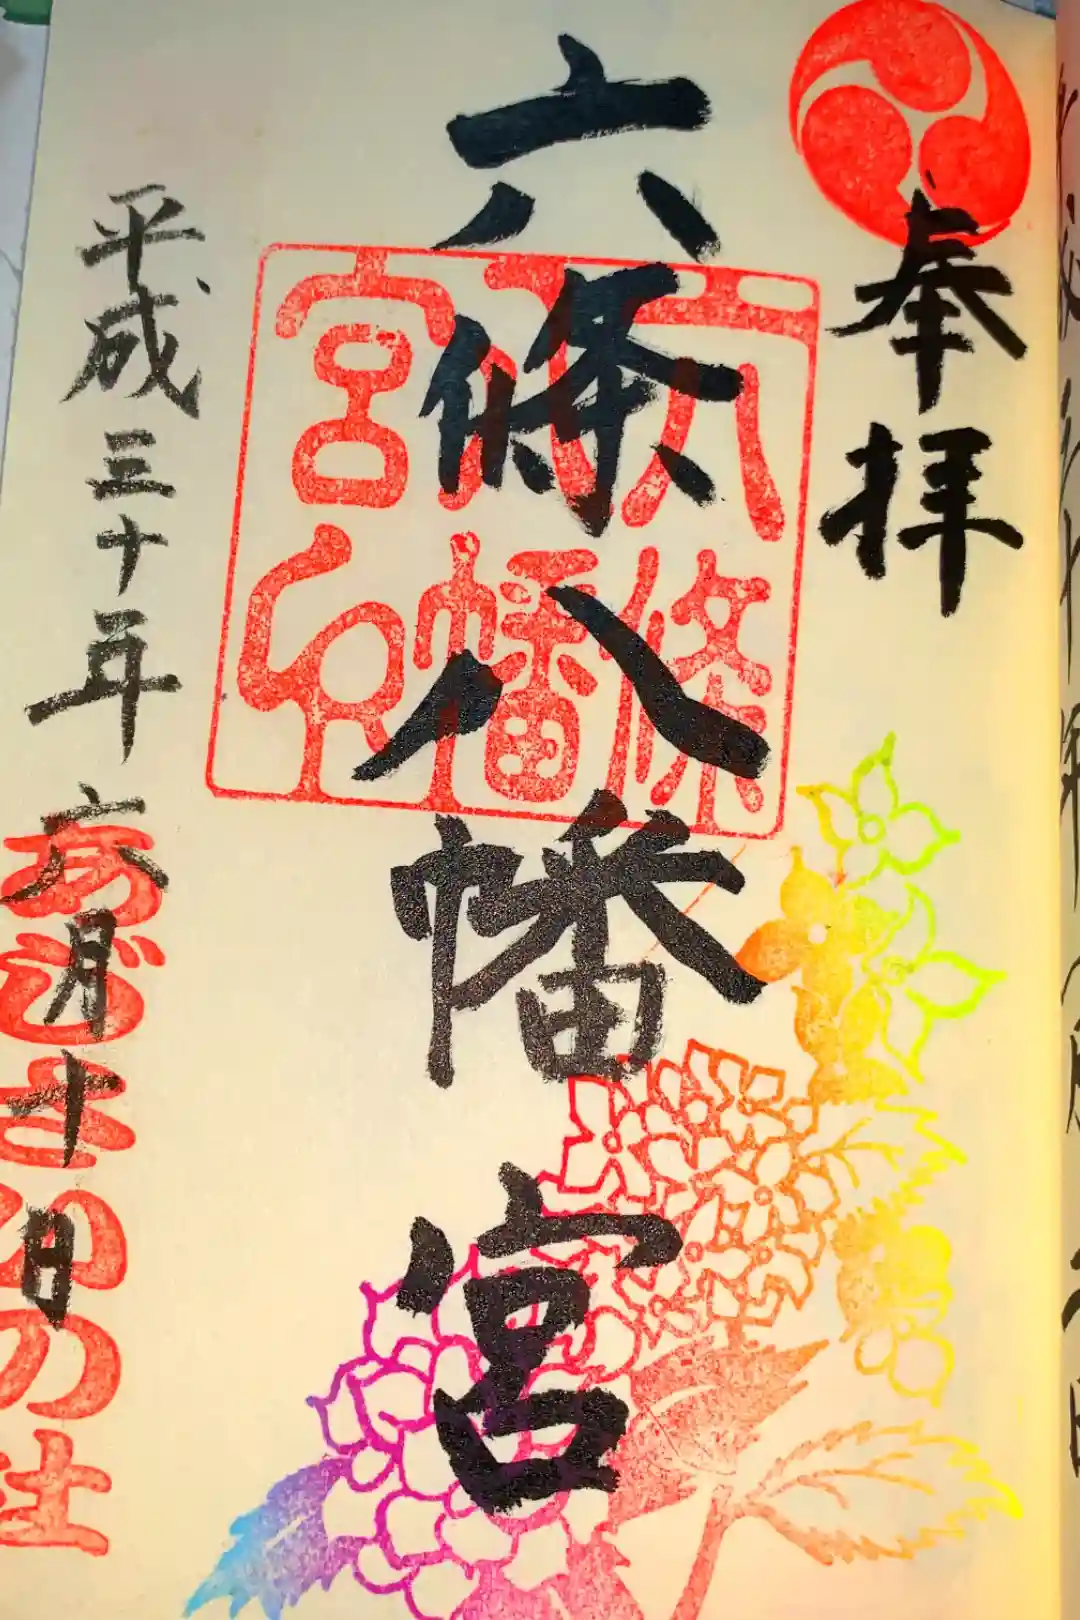 奉拝
六條八幡宮
六條八幡宮印
平成三十年六月十日
あじさいの社